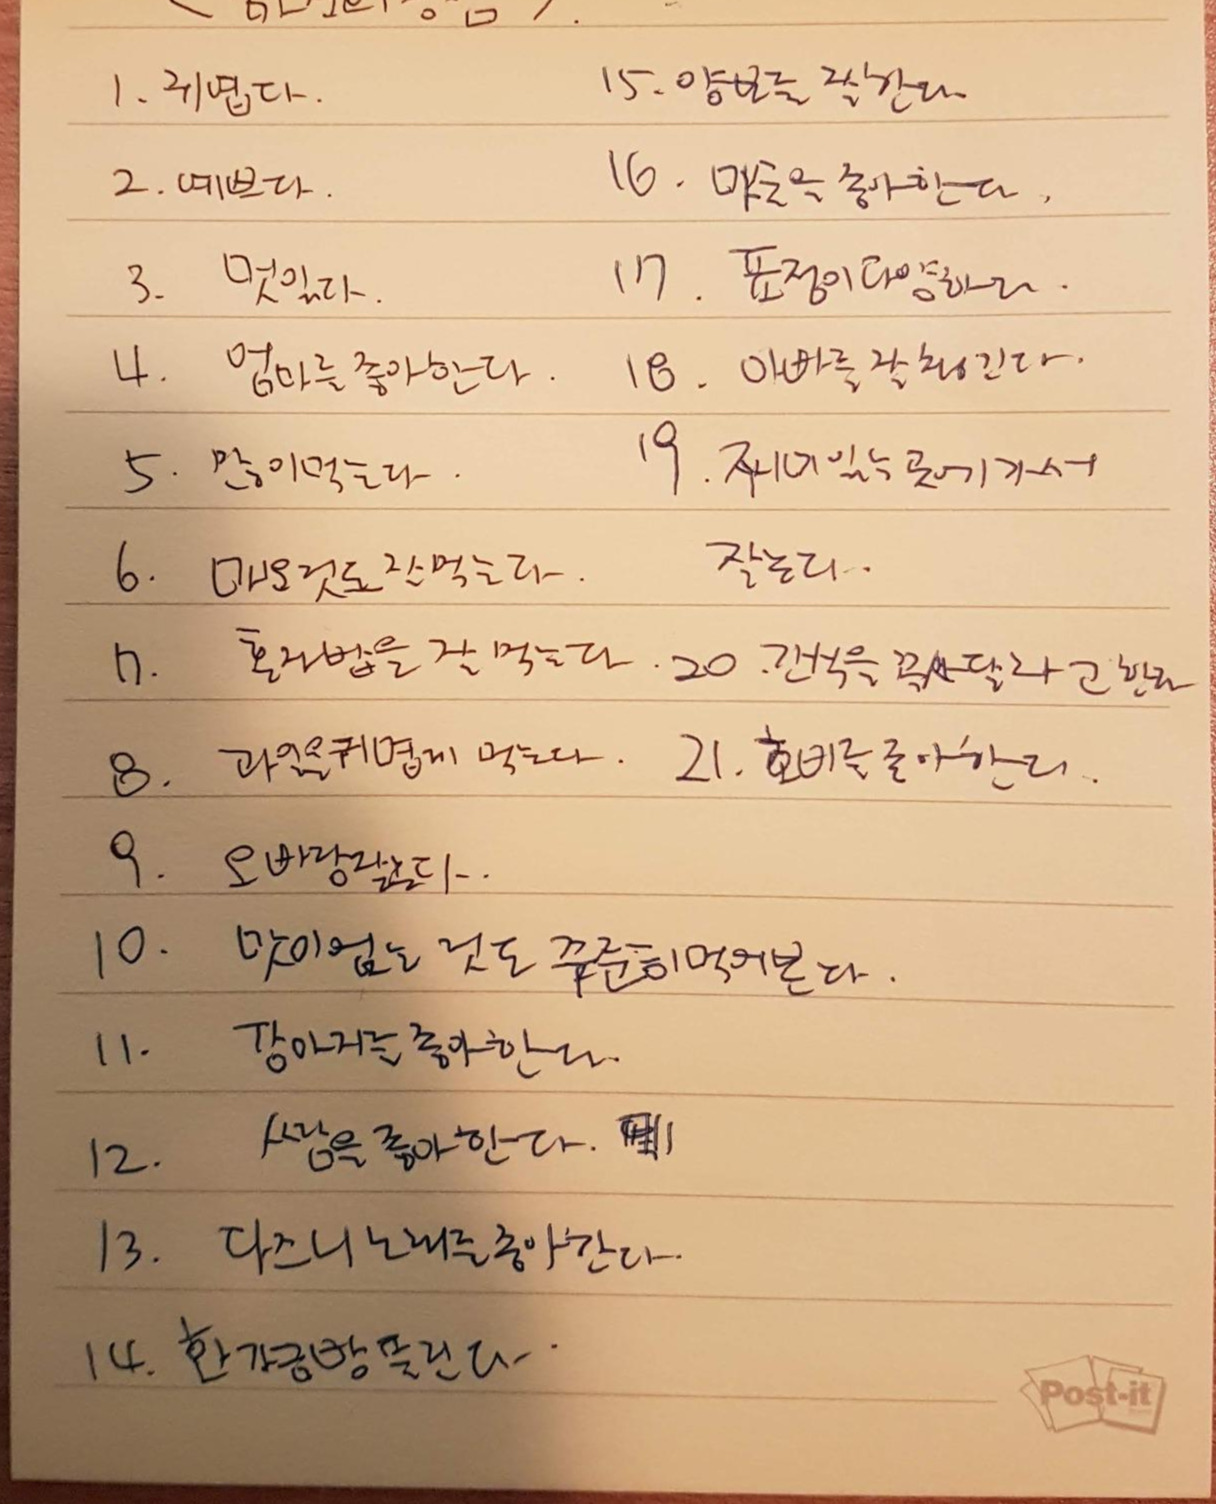 1. 귀엽다.
2. 예쁘다.
3. 멋있다.
4. 엄마를 좋아한다.
5. 많이먹는다.
6. 매운것도 잘먹는다.
7. 혼자밥을 잘 먹는다.
8. 과일을귀엽게 먹는다.
9. 오빠랑잘논다.
10. 맛이없는 것도 꾸준히먹어본다.
11. 강아지를좋아한다.
12. 사람을좋아한다.
13. 디즈니노래를좋아한다.
14. 한가금방풀린다.
15. 양보를 잘한다
16. 마늘을 좋아한다.
17. 표정이다양하다.
18. 아빠를잘챙긴다.
19. 재미있는곳에가서
잘논다.
20. 간식을 꼭 달라고한다
21. 호비를좋아한다.
Post-it